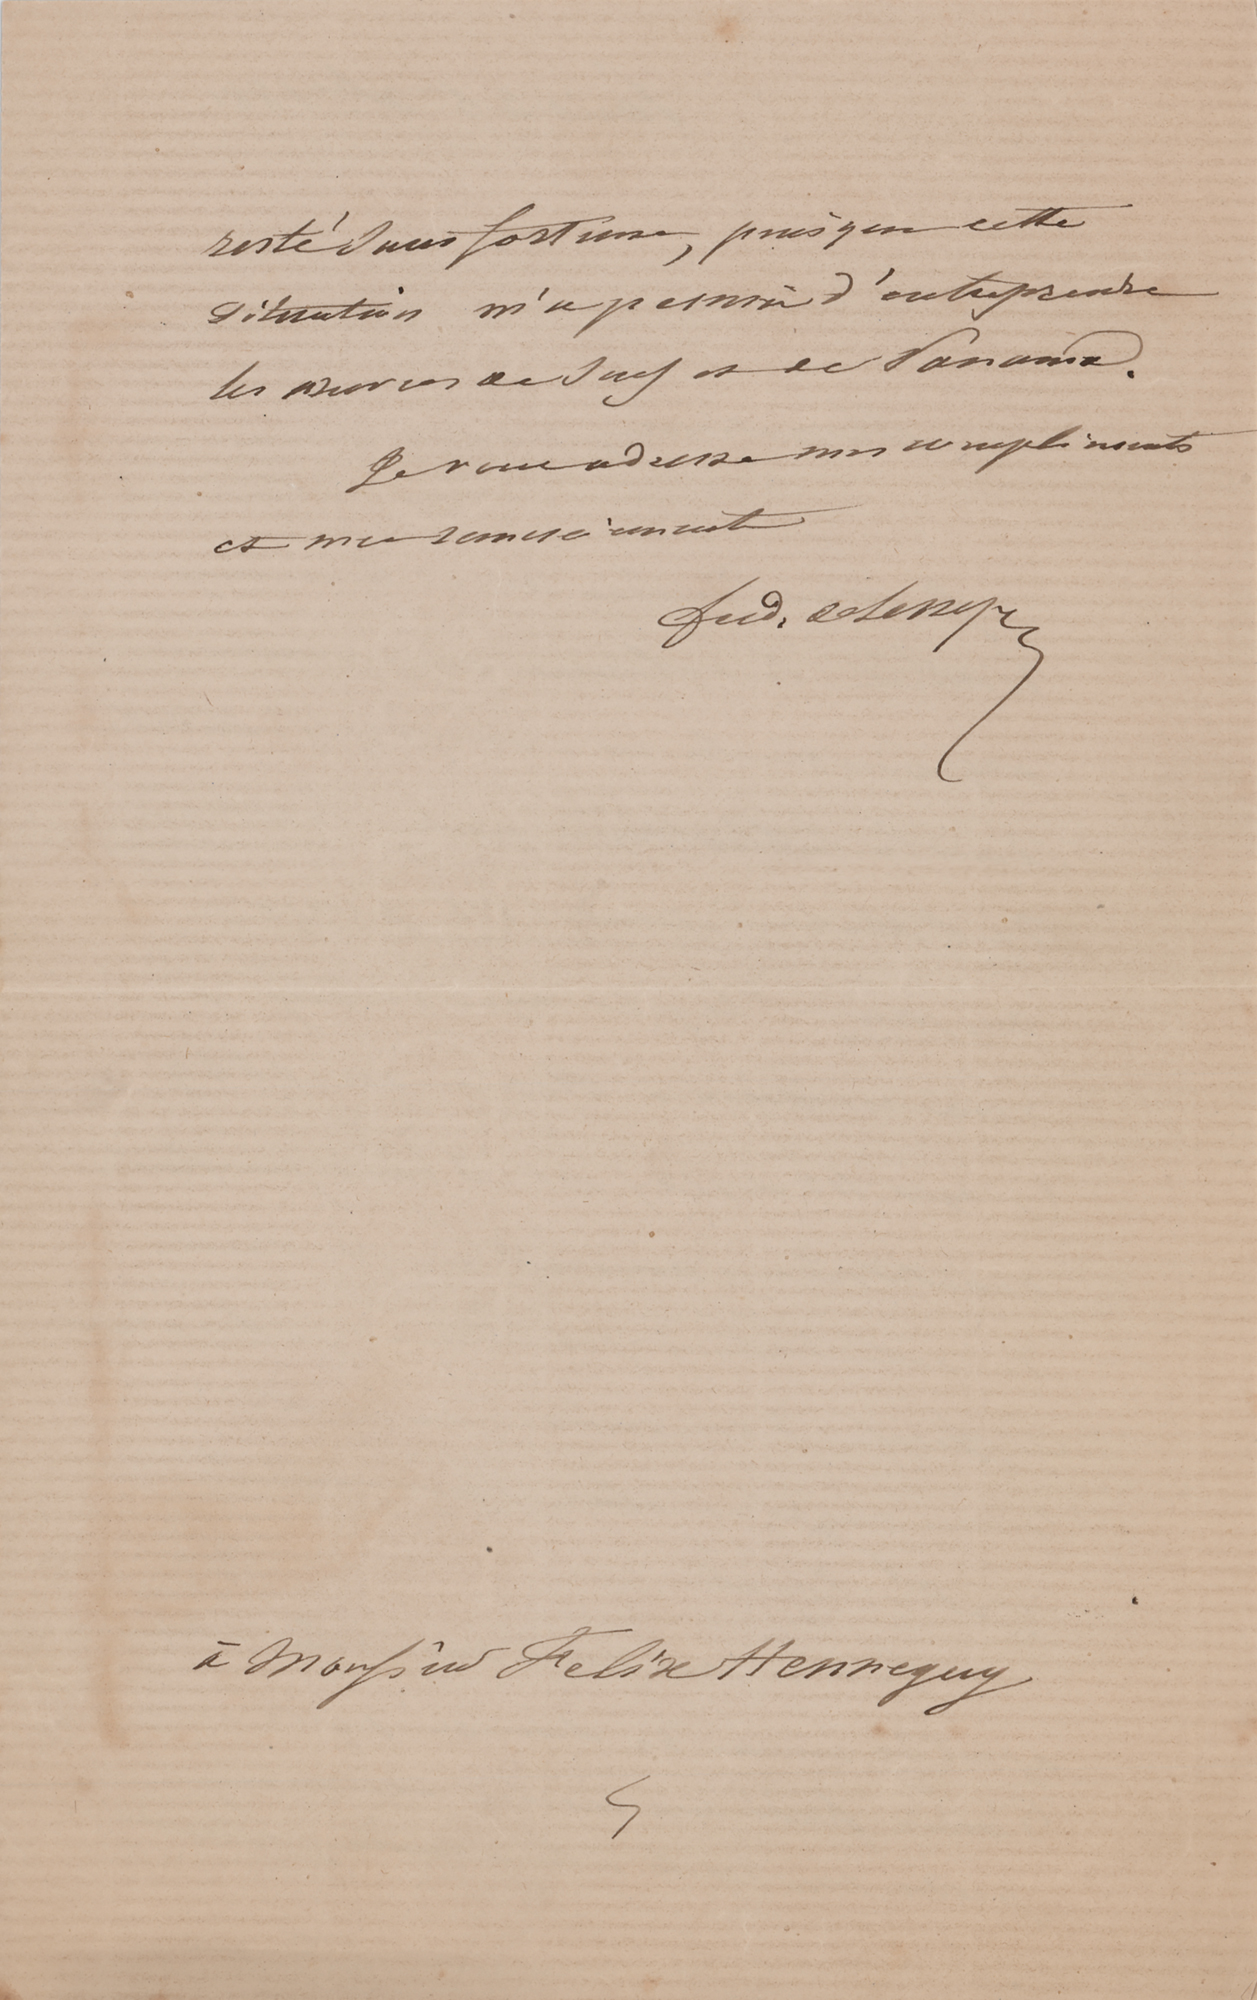 resté sans fortune, puisque cette
situation m'a permis d'entreprendre
les œuvres de Suez et de Panama.
Je vous adresse mes compliments
et mes remerciements
Ferd. de Lesseps
à Monsieur Felix Hennéguy